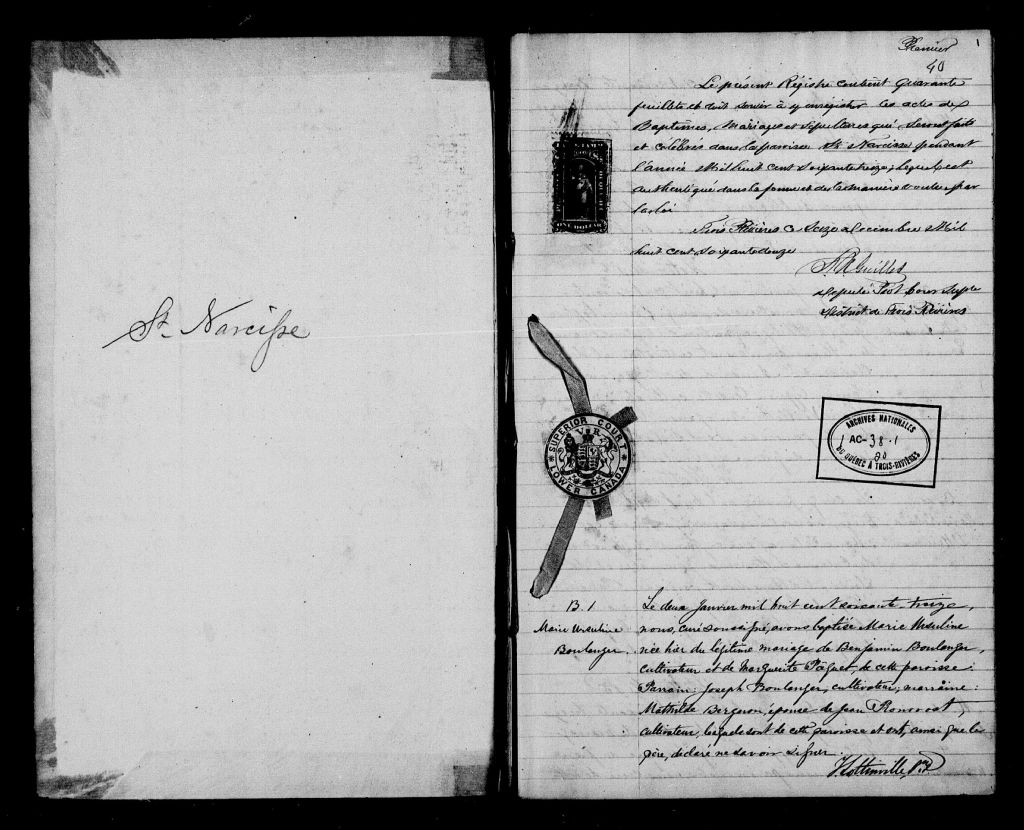 St. Narcisse
1
Premier
40
Le présent Régistre contient Quarante
feuillets et doit servir à y enrégistrer les actes de
Baptêmes, Mariages et Sépultures qui seront faits
et célébrés dans la paroisse St Narcisse pendant
l'année Mil huit cent Soixante treize; lequel est
authentiqué dans la forme et de la manière voulue par
la loi
Trois Rivières ce Seize Decembre Mil
huit cent Soixante douze
Député Prot Cour Supre
District de Trois Rivières
ONE DOLLAR
SUPERIOR COURT
V R
LOWER CANADA
ARCHIVES NATIONALES
AC-38.1
DU QUÉBEC À TROIS-RIVIÈRES
B. 1
Marie Ursuline
Boulanger.
Le deux Janvier mil huit cent soixante treize,
nous, curé soussigné, avons baptisé Marie Ursuline
née hier du légitime mariage de Benjamin Boulanger,
cultivateur et de Marguerite Paquet, de cette paroisse.
Parrain: Joseph Boulanger, cultivateur; marraine:
Mathilde Bergeron, épouse de Jean
cultivateur, lesquels sont de cette paroisse et ont, ainsi que le
père, déclaré ne savoir signer.